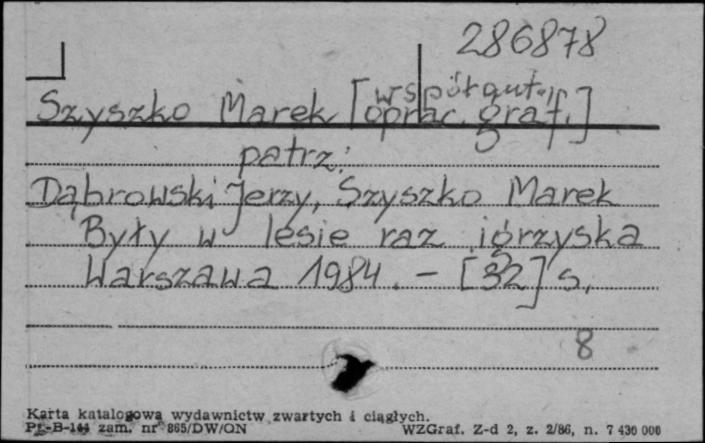 286878
współaut. i
Szyszko Marek [oprac. graf.]
patrz:
Dąbrowski Jerzy, Szyszko Marek
Były w lesie raz igrzyska
Warszawa 1984. - [32] s.
8
Karta katalogowa wydawnictw zwartych i ciągłych.
Pu-B-144 zam. nr 865/DW/ON WZGraf. Z-d 2, z. 2/86, n. 7 430 000